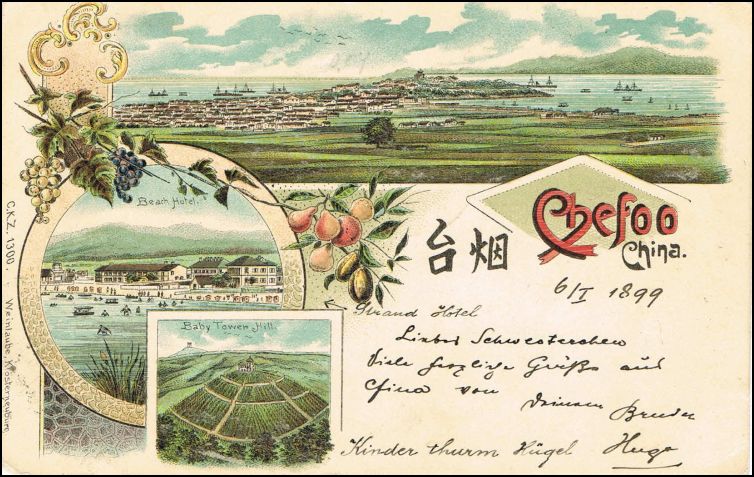 Beach Hotel.
Baby Tower Hill.
Chefoo
China.
台烟
6/I 1899
Strand Hotel
Liebes Schwesterchen
Viele herzliche Grüße aus
China von
Deinem Bruder
Hugo
Kinder thurm Hügel
C.K.Z. 1300. Weinlaube, Klosterneuburg.